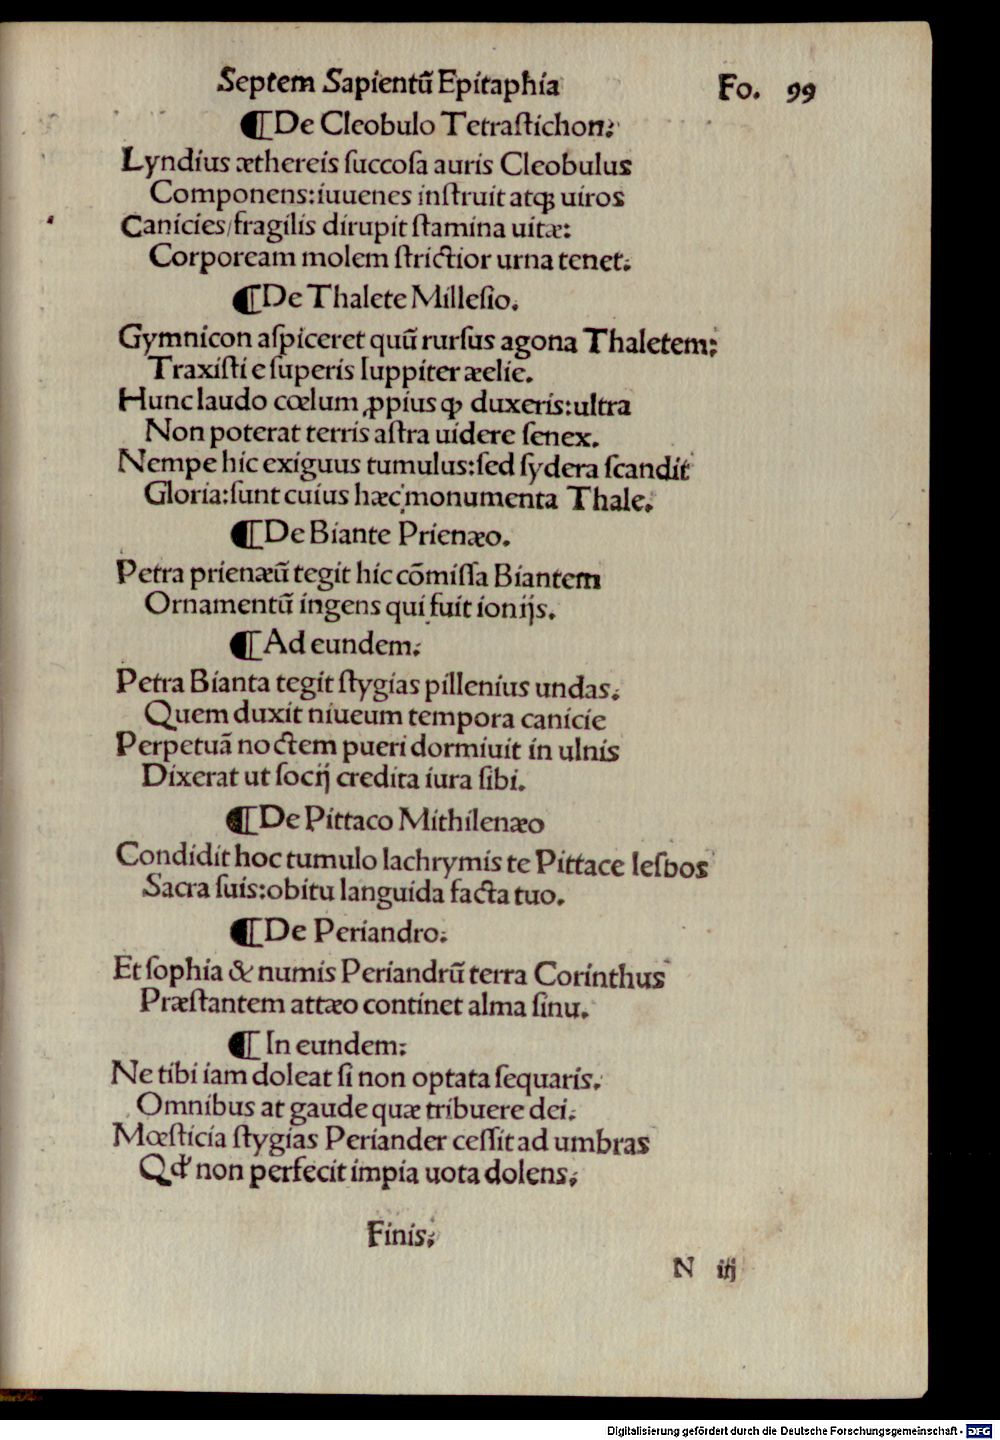 Septem Sapientū Epitaphia Fo. 99
¶De Cleobulo Tetraſtichon:
Lyndius æthereis ſuccoſa auris Cleobulus
Componens:iuuenes inſtruit atqꝫ uiros
Canicies/fragilis dirupit ſtamina uitæ:
Corpoream molem ſtrictior urna tenet.
¶De Thalete Milleſio.
Gymnicon aſpiceret quū rurſus agona Thaletem:
Traxiſti e ſuperis Iuppiter æelie.
Hunc laudo cœlum ꝓpius ꝙ duxeris:ultra
Non poterat terris aſtra uidere ſenex.
Nempe hic exiguus tumulus:ſed ſydera ſcandit
Gloria:ſunt cuius hæc monumenta Thale.
¶De Biante Prienæo.
Petra prienæū tegit hic cōmiſſa Biantem
Ornamentū ingens qui fuit ionijs.
¶Ad eundem.
Petra Bianta tegit ſtygias pillenius undas.
Quem duxit niueum tempora canicie
Perpetuā noctem pueri dormiuit in ulnis
Dixerat ut ſocij credita iura ſibi.
¶De Pittaco Mithilenæo
Condidit hoc tumulo lachrymis te Pittace leſbos
Sacra ſuis:obitu languida facta tuo.
¶De Periandro.
Et ſophia & numis Periandrū terra Corinthus
Præſtantem attæo continet alma ſinu.
¶In eundem:
Ne tibi iam doleat ſi non optata ſequaris.
Omnibus at gaude quæ tribuere dei.
Mœſticia ſtygias Periander ceſſit ad umbras
Qd' non perfecit impia uota dolens.
Finis.
N iij
Digitalisierung gefördert durch die Deutsche Forschungsgemeinschaft - DFG